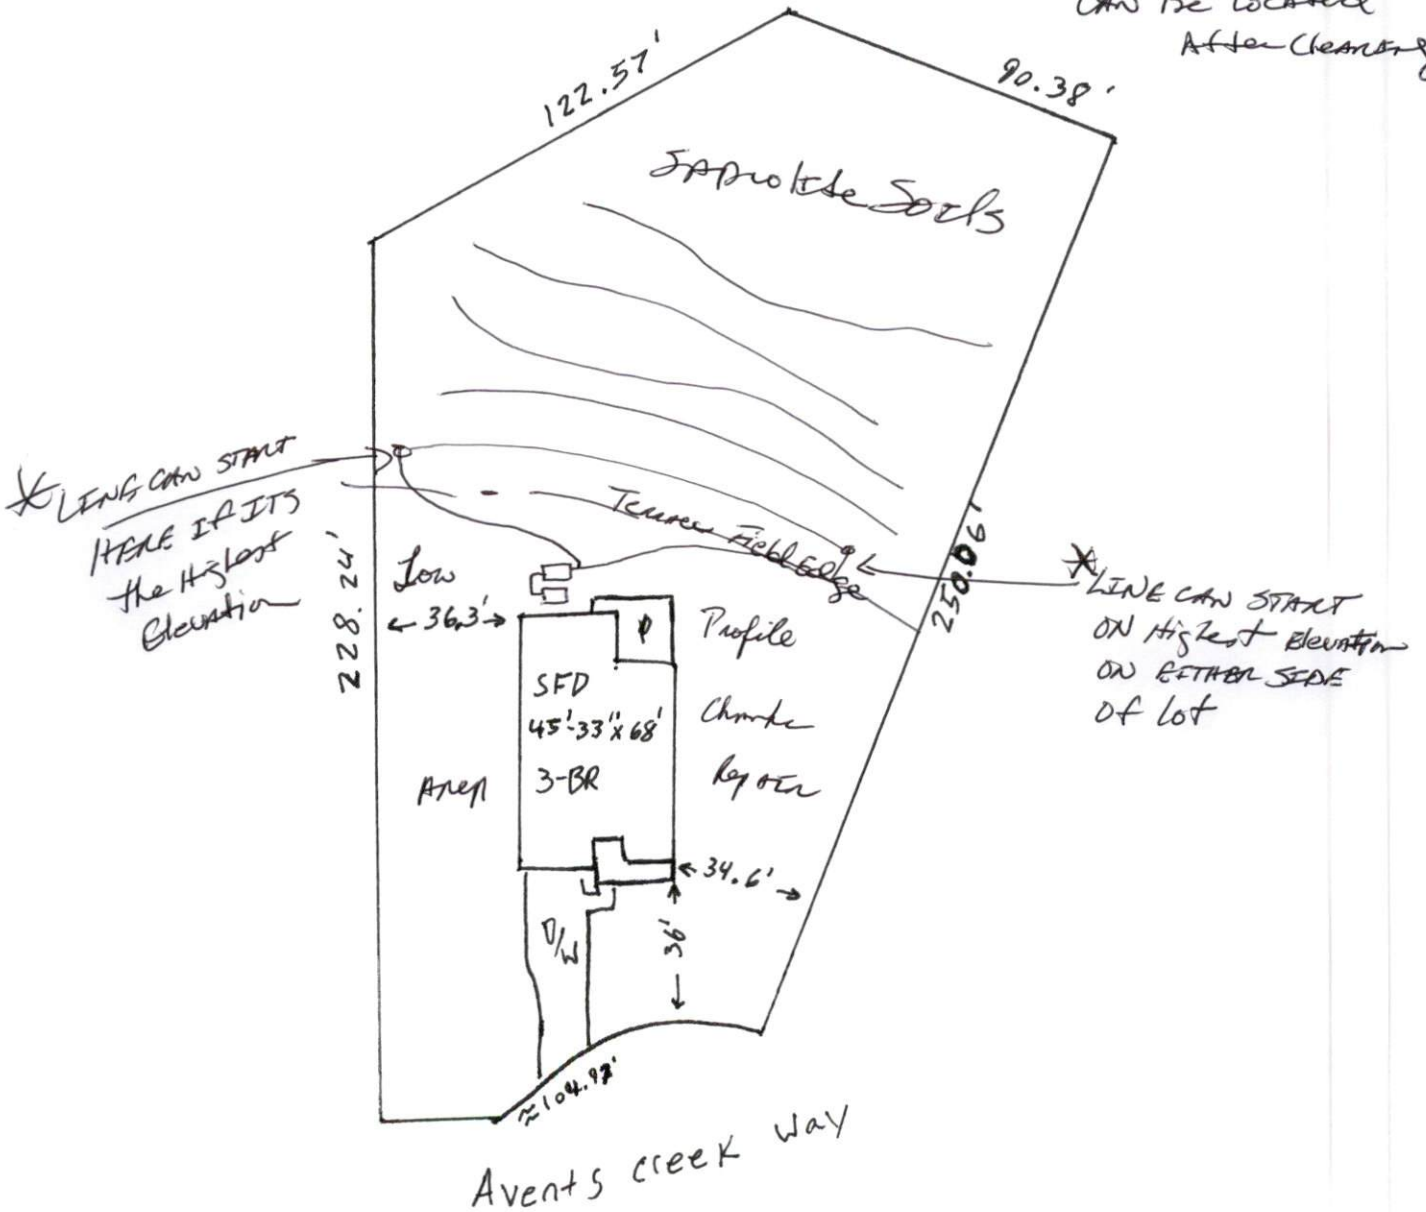 CAN BE LOCATED
After Clearing
122.57'
90.38'
Saprolite Soils
* LINE CAN START
HERE If ITS
the Highest
Elevation
Terrace Field Edge
250.06'
* LINE CAN START
ON Highest Elevation
ON EITHER SIDE
Of lot
Low
228.24'
← 36.3' →
P
Profile
SFD
45'-33" x 68'
3-BR
Repair
Area
← 34.6' →
36'
D/W
≈104.97'
Avents Creek Way